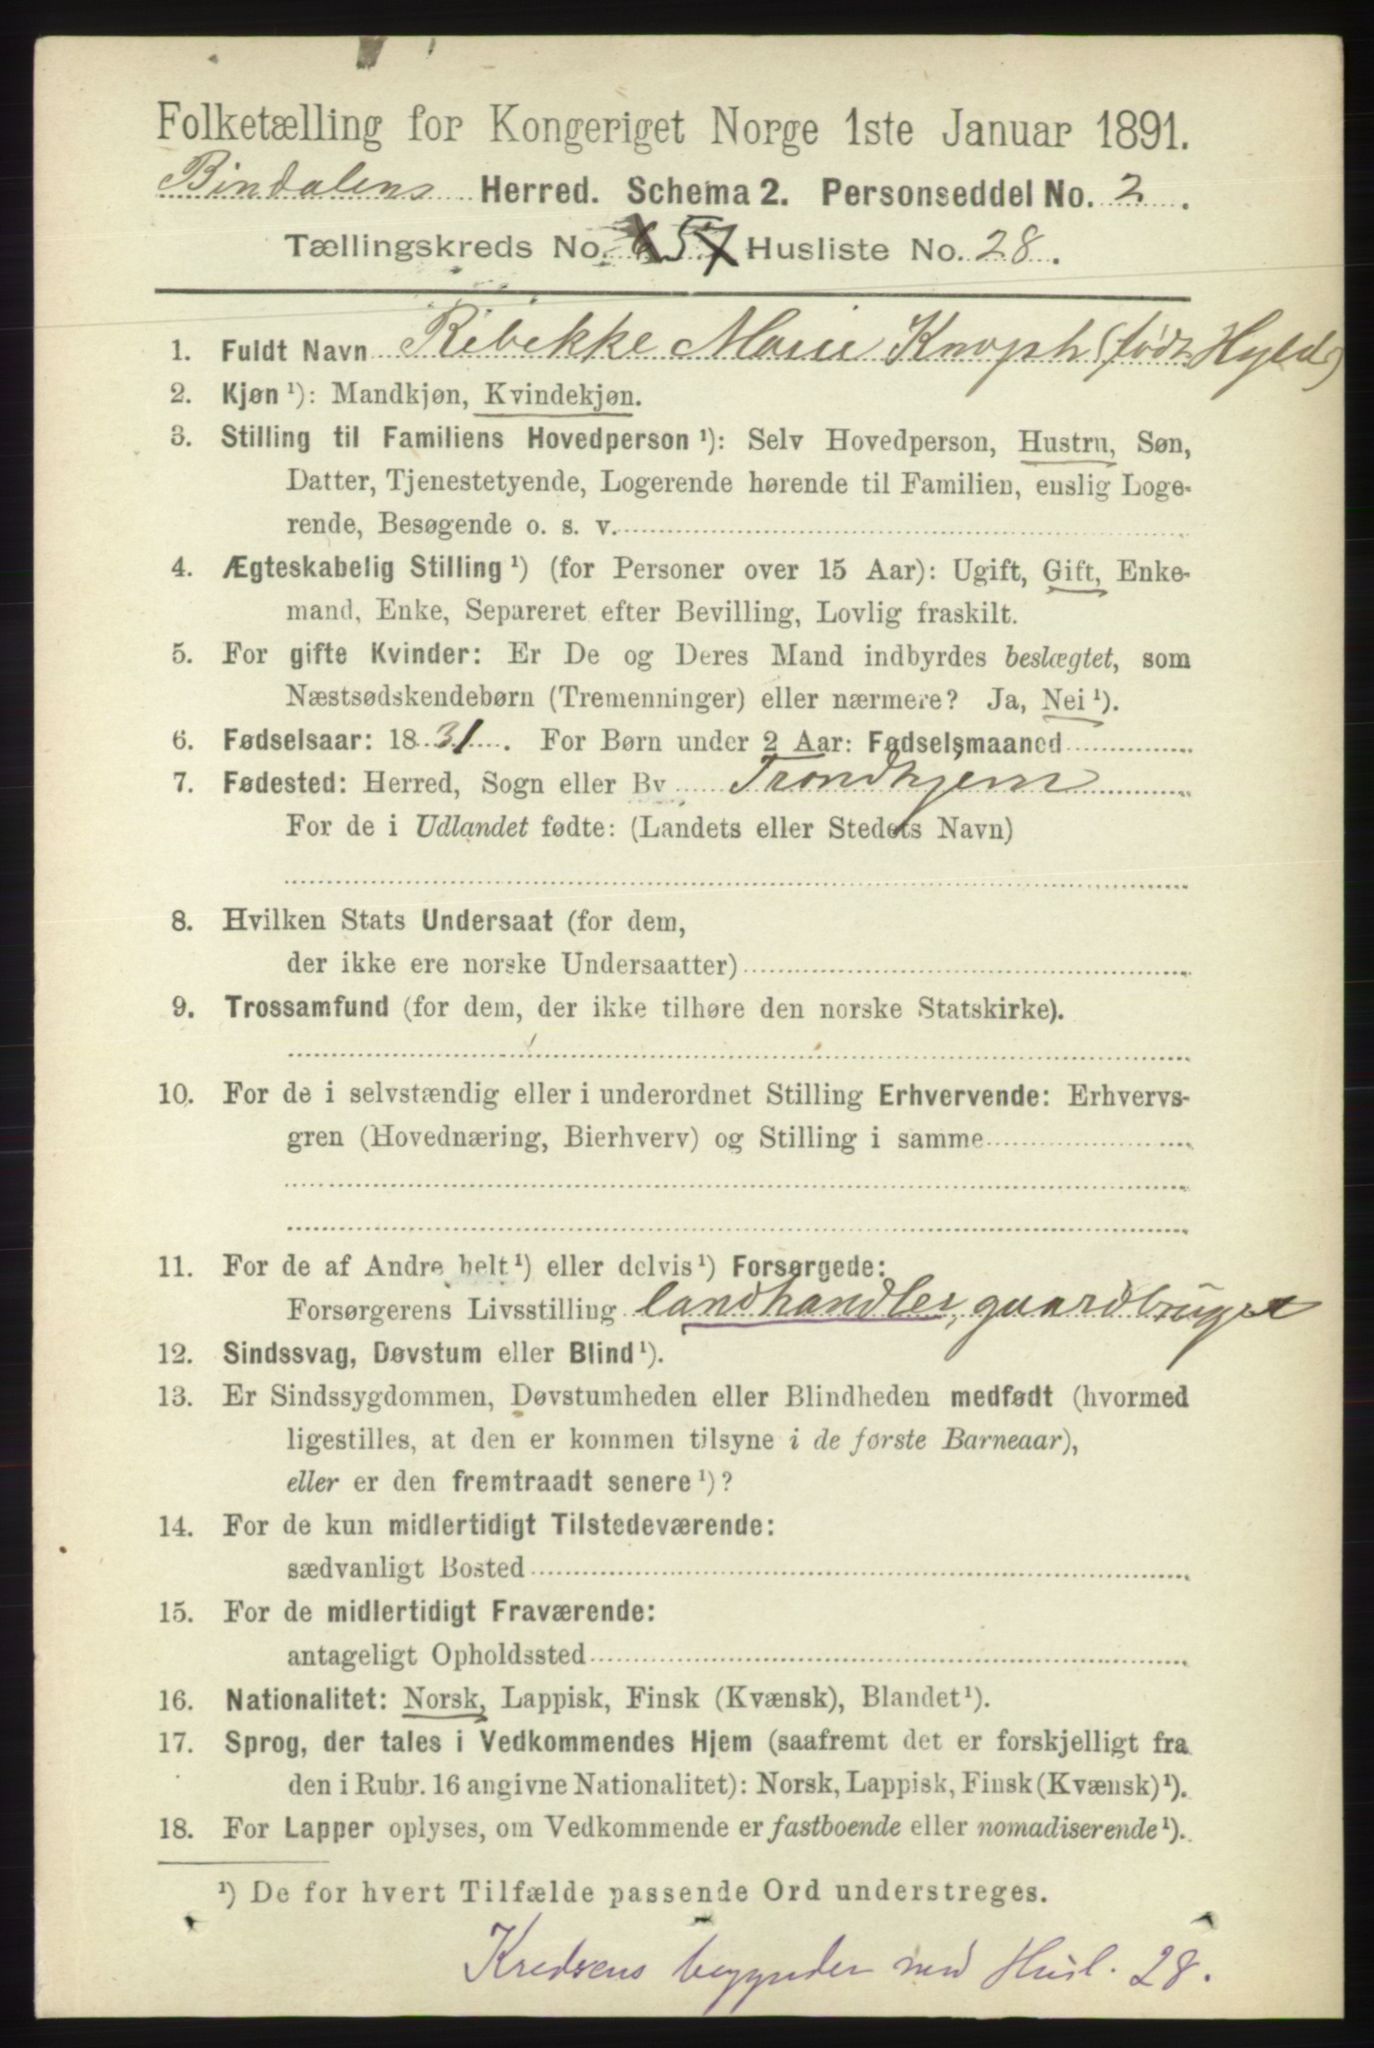 Folketælling for Kongeriget Norge 1ste Januar 1891.
Bindalens Herred. Schema 2. Personseddel No. 2.
Tællingskreds No. 5 Husliste No. 28.
1. Fuldt Navn Rebekke Marie Knoph (født Hyld)
2. Kjøn ¹): Mandkjøn, Kvindekjøn.
3. Stilling til Familiens Hovedperson ¹): Selv Hovedperson, Hustru, Søn,
Datter, Tjenestetyende, Logerende hørende til Familien, enslig Loge-
rende, Besøgende o. s. v.
4. Ægteskabelig Stilling ¹) (for Personer over 15 Aar): Ugift, Gift, Enke-
mand, Enke, Separeret efter Bevilling, Lovlig fraskilt.
5. For gifte Kvinder: Er De og Deres Mand indbyrdes beslægtet, som
Næstsødskendebørn (Tremenninger) eller nærmere? Ja, Nei ¹).
6. Fødselsaar: 1831. For Børn under 2 Aar: Fødselsmaaned
7. Fødested: Herred, Sogn eller By Trondhjem
For de i Udlandet fødte: (Landets eller Stedets Navn)
8. Hvilken Stats Undersaat (for dem,
der ikke ere norske Undersaatter)
9. Trossamfund (for dem, der ikke tilhøre den norske Statskirke).
10. For de i selvstændig eller i underordnet Stilling Erhvervende: Erhvervs-
gren (Hovednæring, Bierhverv) og Stilling i samme
11. For de af Andre helt ¹) eller delvis ¹) Forsørgede:
Forsørgerens Livsstilling landhandler, gaardbruger
12. Sindssvag, Døvstum eller Blind ¹).
13. Er Sindssygdommen, Døvstumheden eller Blindheden medfødt (hvormed
ligestilles, at den er kommen tilsyne i de første Barneaar),
eller er den fremtraadt senere ¹)?
14. For de kun midlertidigt Tilstedeværende:
sædvanligt Bosted
15. For de midlertidigt Fraværende:
antageligt Opholdssted
16. Nationalitet: Norsk, Lappisk, Finsk (Kvænsk), Blandet ¹).
17. Sprog, der tales i Vedkommendes Hjem (saafremt det er forskjelligt fra
den i Rubr. 16 angivne Nationalitet): Norsk, Lappisk, Finsk (Kvænsk) ¹).
18. For Lapper oplyses, om Vedkommende er fastboende eller nomadiserende ¹).
¹) De for hvert Tilfælde passende Ord understreges.
Kredsens begynder med Husl. 28.